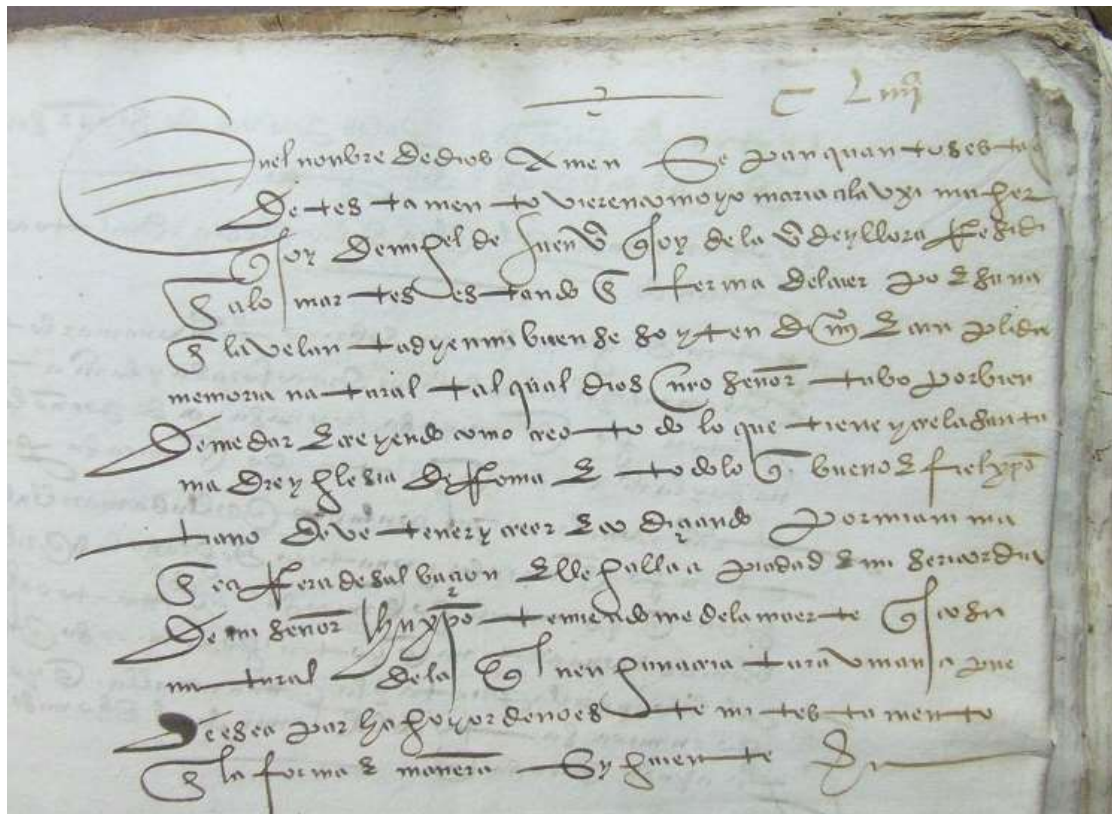 C Liiijº
En el nonbre de dios Amen Sepan quantos esta
de testamento vieren como yo maria alauxi muger
q soy de miguel de Jaen vº q soy de la vª de yllora Resydẽ
en alomartes estando en ferma del cuerpo e sana
en la veluntad y en mi buen seso y entendimiº e cunplida
memoria natural tal qual dios nro señor tubo por bien
de me dar e creyendo como creo todo lo que tiene y cre la santa
madre yglesia de Roma e todo lo q bueno e fiel xpõ
tiano deve tener y creer e codiçiando por mi anima
en carrera de salvaçion e llegalla a piadad e misericordia
de mi señor Jhu xpõ temiendome de la muerte q es cosa
natural de la ql nenguna criatura vmana pue
de escapar hago y ordeno este mi testamento
en la forma e manera syguiente